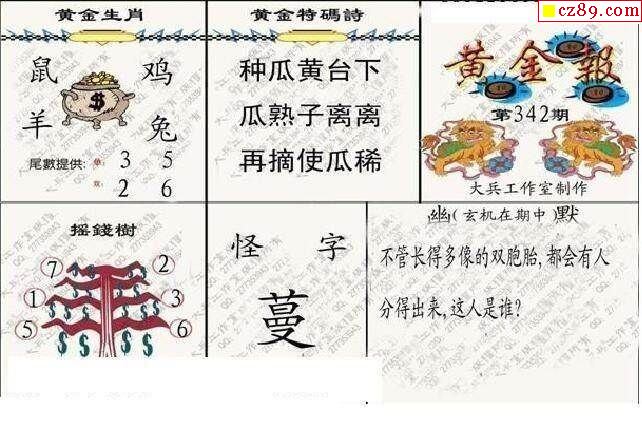 cz89.com
黄金生肖
鼠 鸡
$
羊 兔
尾數提供: 单 3 5
双 2 6
黄金特碼詩
种瓜黄台下
瓜熟子离离
再摘使瓜稀
黄金報
第342期
大兵工作室制作
摇錢樹
7 2
1 3
5 6
$ $ $ $ $ $
$ $
怪 字
蔓
幽(玄机在期中)默
不管长得多像的双胞胎,都会有人
分得出来,这人是谁?